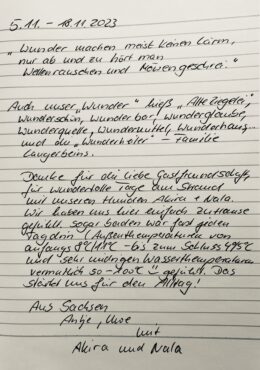 5.11. - 18.11.2023
"Wunder machen meist keinen Lärm,
nur ab und zu hört man
Wellenrauschen und Möwengeschrei."
Auch unser "Wunder" hieß "Alte Ziegelei",
wunderschön, wunderbar, wunderglaube,
wunderquelle, wundermittel, wunderhaus...
und die "Wundertäter" - Familie
Langerbeins.
Danke für die liebe Gastfreundschaft,
für wundervolle Tage am Strand
mit unseren Hunden Akira + Nala.
Wir haben uns hier einfach zuhause
gefühlt, sogar baden war fast jeden
Tag drin (Außentemperaturen von
anfangs - bis zum Schluss
und sehr niedrigen Wassertemperaturen
vermutlich so gefühlt. Das
stärkt uns für den Alltag!
Aus Sachsen
Antje, Uwe
mit
Akira und Nala